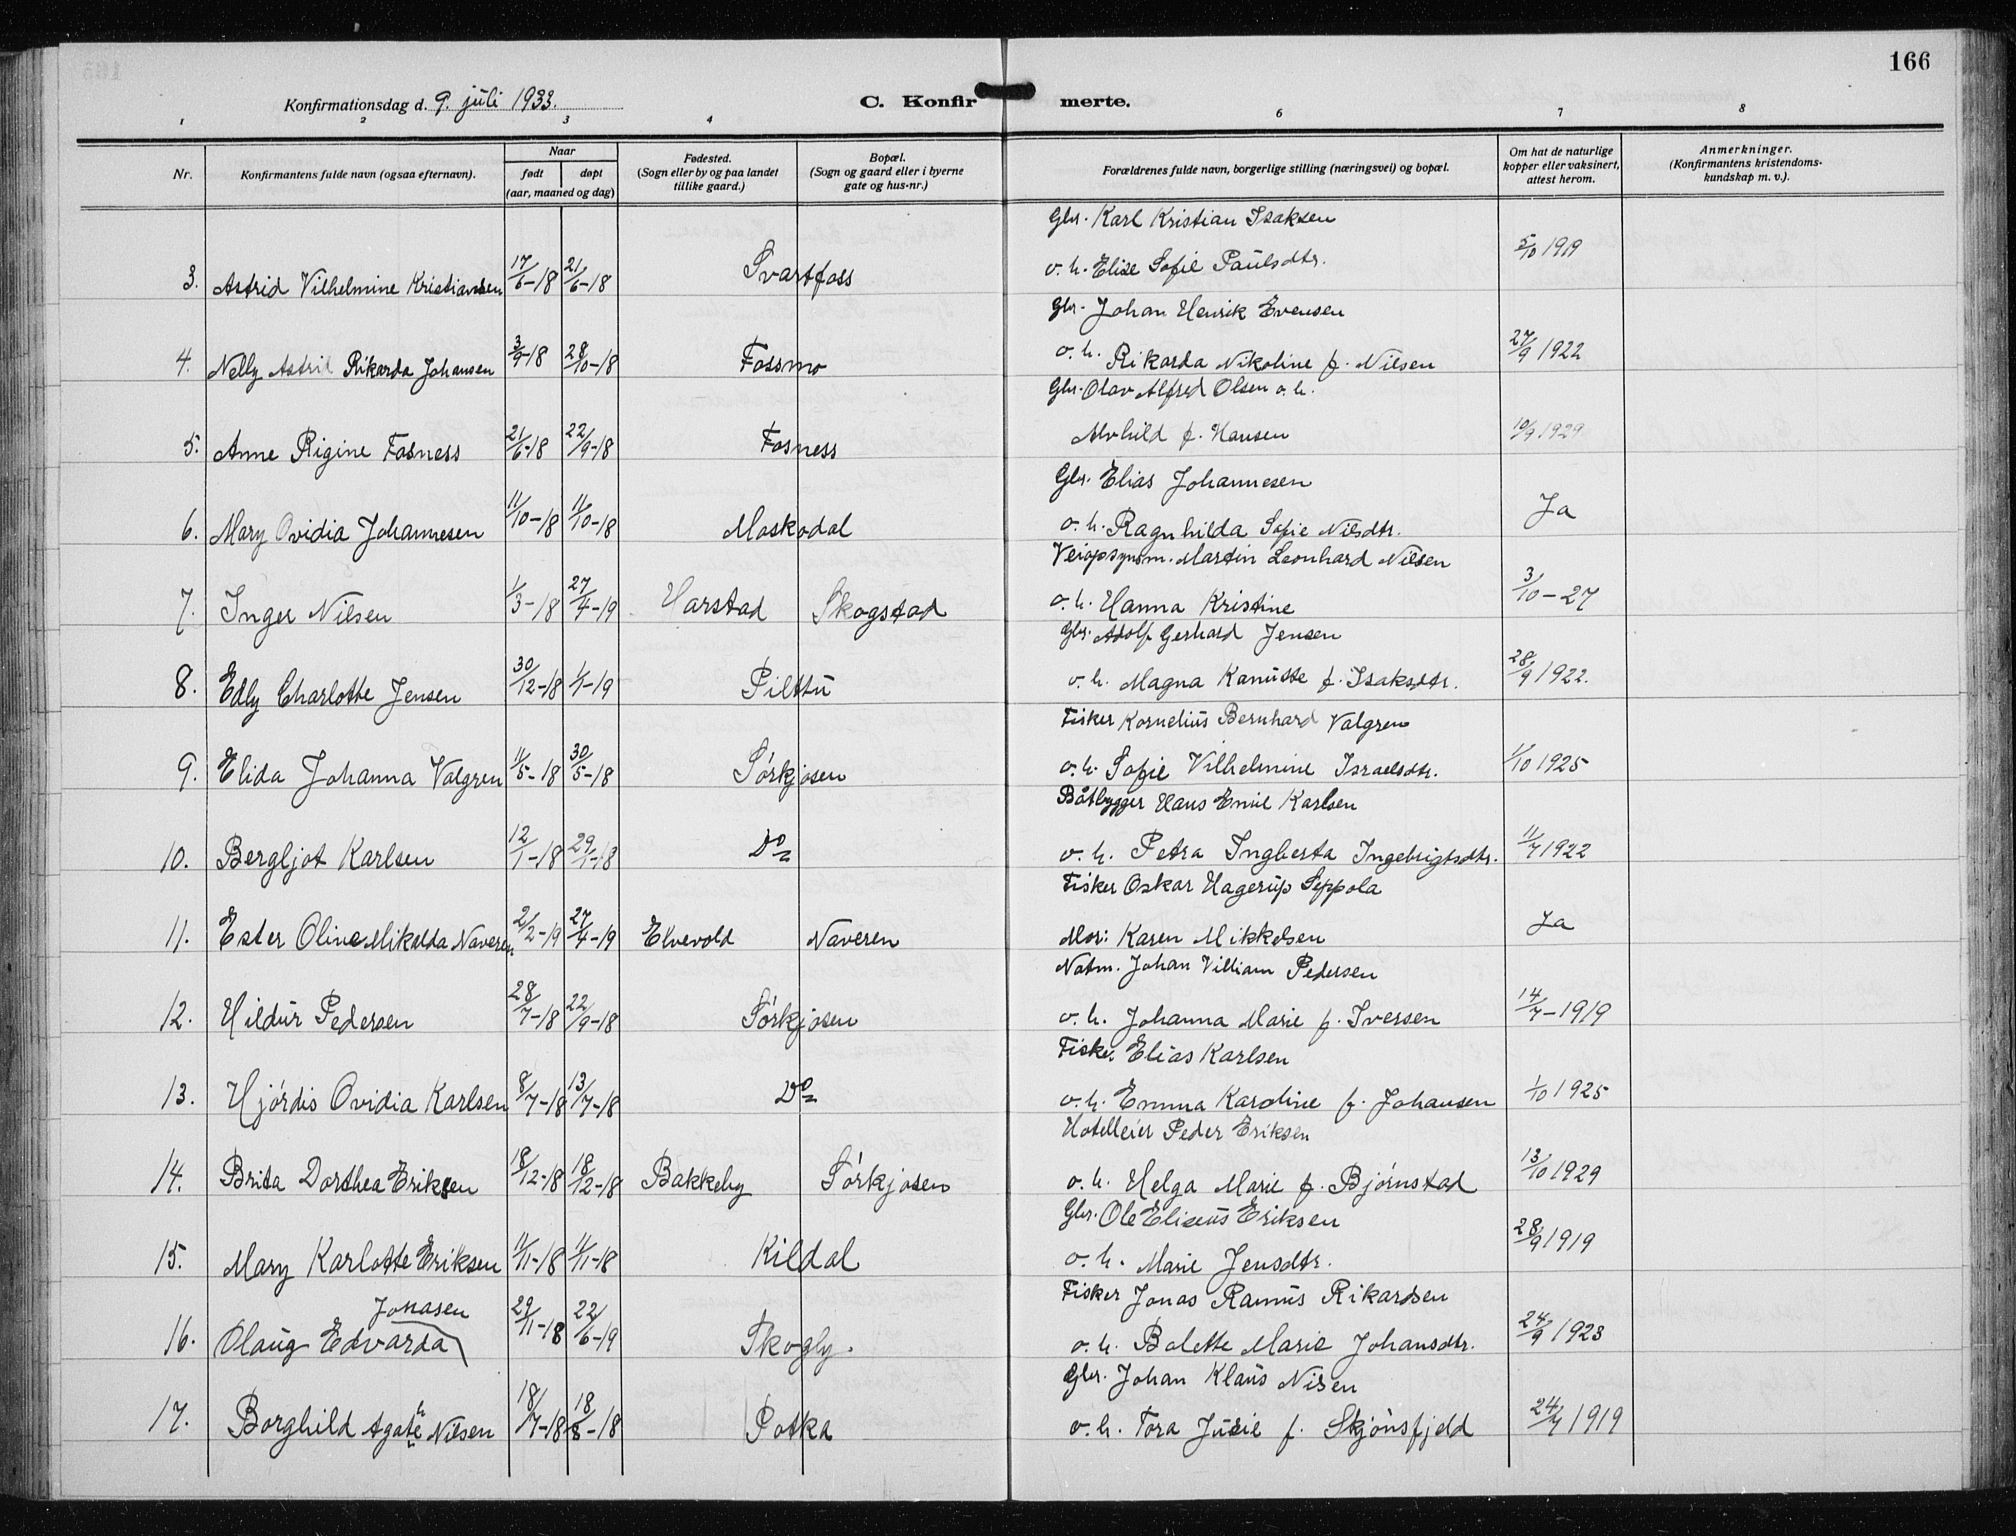 166
Konfirmationsdag d. 9. juli 1933. C. Konfirmerte.
1 2 3 4 6 7 8
Nr. Konfirmantens fulde navn (ogsaa efternavn). Naar født døpt (aar, maaned og dag) Fødested. (Sogn eller by og paa landet tillike gaard.) Bopæl. (Sogn og gaard eller i byerne gate og hus-nr.) Forældrenes fulde navn, borgerlige stilling (næringsvei) og bopæl. Om hat de naturlige kopper eller vaksinert, attest herom. Anmerkninger. (Konfirmantens kristendomskundskap m. v.).
Gbr. Karl Kristian Isaksen
3. Astrid Vilhelmine Kristiansen 17/6-18 21/6-18 Svartfoss o. h. Elise Sofie Paulsdtr. 5/10 1919
Gbr. Johan Henrik Evensen
4. Nelly Astrid Rikarda Johansen 3/9-18 28/10-18 Fossmo o. h. Rikarda Nikoline f. Nilsen 27/9 1922
Gbr. Olav Alfred Olsen o. h.
5. Anne Rigine Fosness 21/6-18 22/9-18 Fosness Alvhild f. Hansen 10/9 1929
Gbr. Elias Johannesen
6. Mary Ovidia Johannesen 11/10-18 11/10-18 Moskodal o. h. Ragnhilda Sofie Nilsdtr. Ja
Veiopsynsm. Martin Leonhard Nilsen
7. Inger Nilsen 1/3-18 27/4-19 Harstad Skogstad o. h. Hanna Kristine 3/10-27
Gbr. Adolf Gerhard Jensen
8. Edly Charlotte Jensen 30/12-18 1/1-19 Pilttu o. h. Magna Kanutte f. Isaksdtr. 28/9 1922.
Fisker Kornelius Bernhard Valgren
9. Elida Johanna Valgren 11/5-18 30/5-18 Sörkjosen o. h. Sofie Vilhelmine Israelsdtr. 1/10 1925
Båtbygger Hans Emil Karlsen
10. Bergljot Karlsen 12/1-18 29/1-18 Do o. h. Petra Ingberta Ingebrigtsdtr. 11/7 1922
Fisker Oskar Hagerup Seppola
11. Ester Oline Mikalda Naveren 2/2-19 27/4-19 Elvevold Naveren Mor: Karen Mikkelsen Ja
Notm. Johan Villiam Pedersen
12. Hildur Pedersen 28/7-18 22/9-18 Sörkjosen o. h. Johanna Marie f. Iversen 14/7-1919
Fisker Elias Karlsen
13. Hjördis Ovidia Karlsen 8/7-18 13/7-18 Do o. h. Emma Karoline f. Johansen 1/10 1925
Hotelleier Peder Eriksen
14. Brita Dorthea Eriksen 18/12-18 18/12-18 Bakkeby Sörkjosen o. h. Helga Marie f. Bjørnstad 13/10 1929
Gbr. Ole Eliseus Eriksen
15. Mary Karlotte Eriksen 11/11-18 11/11-18 Kildal o. h. Marie Jensdtr. 28/9 1919
Fisker Jonas Ramus Rikardsen
Jonasen
16. Olaug Edvarda 29/11-18 22/6-19 Skogly. o. h. Balette Marie Johansdtr. 24/9 1923
Gbr. Johan Klaus Nilsen
17. Borghild Agathe Nilsen 18/7-18 18/8-18 Potka o. h. Tora Jusie f. Skjönsfjeld 24/7 1919